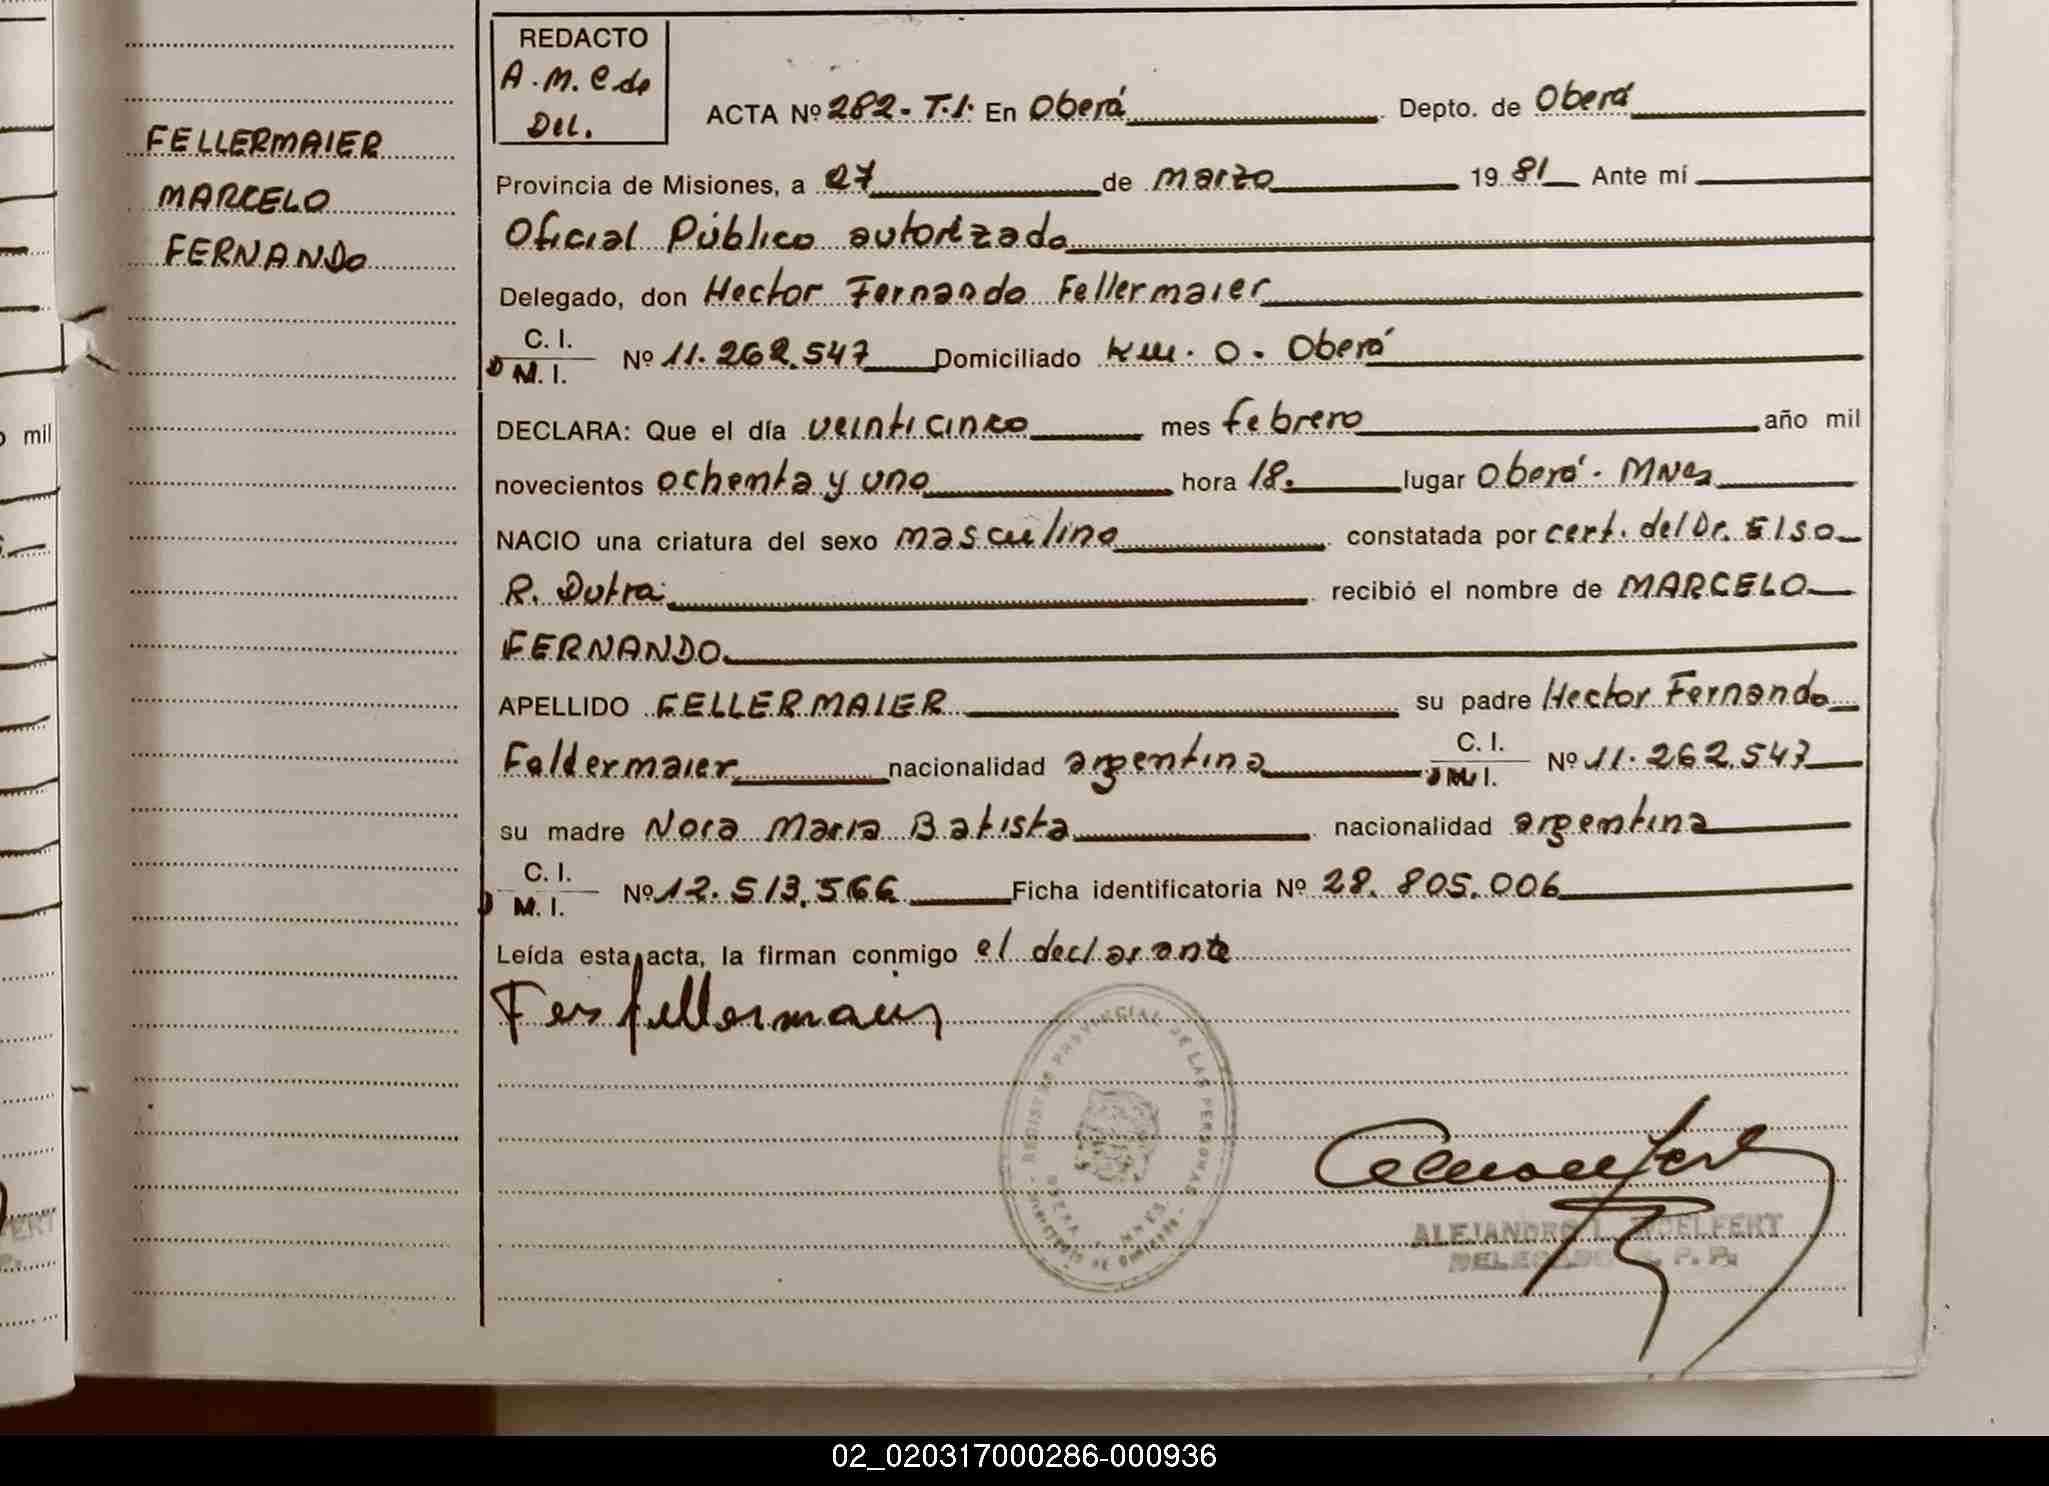 REDACTO
A.M.C de
Del.
FELLERMAIER
MARCELO
FERNANDO
ACTA Nº 282-T.I. En Oberá Depto. de Oberá
Provincia de Misiones, a 27 de marzo 1981 Ante mí
Oficial Público autorizado
Delegado, don Hector Fernando Fellermaier
C. I.
D M. I. Nº 11.262.547 Domiciliado Km. 0. Oberá
DECLARA: Que el día veinticinco mes febrero año mil
novecientos ochenta y uno hora 18. lugar Oberá. MNes
NACIO una criatura del sexo masculino constatada por cert. del Dr. Elso
R. Dutra. recibió el nombre de MARCELO
FERNANDO.
APELLIDO FELLERMAIER su padre Hector Fernando
Feldermaier nacionalidad argentina C. I. D M. I. Nº 11.262.547
su madre Nora Maria Batista nacionalidad argentina
C. I.
D M. I. Nº 12.513.566 Ficha identificatoria Nº 28.805.006
Leída esta acta, la firman conmigo el declarante
Fer fellermaier
REGISTRO PROVINCIAL DE LAS PERSONAS
OBERA MNES.
ALEJANDRO
DELEGADO R. P. P.
o mil
02_020317000286-000936